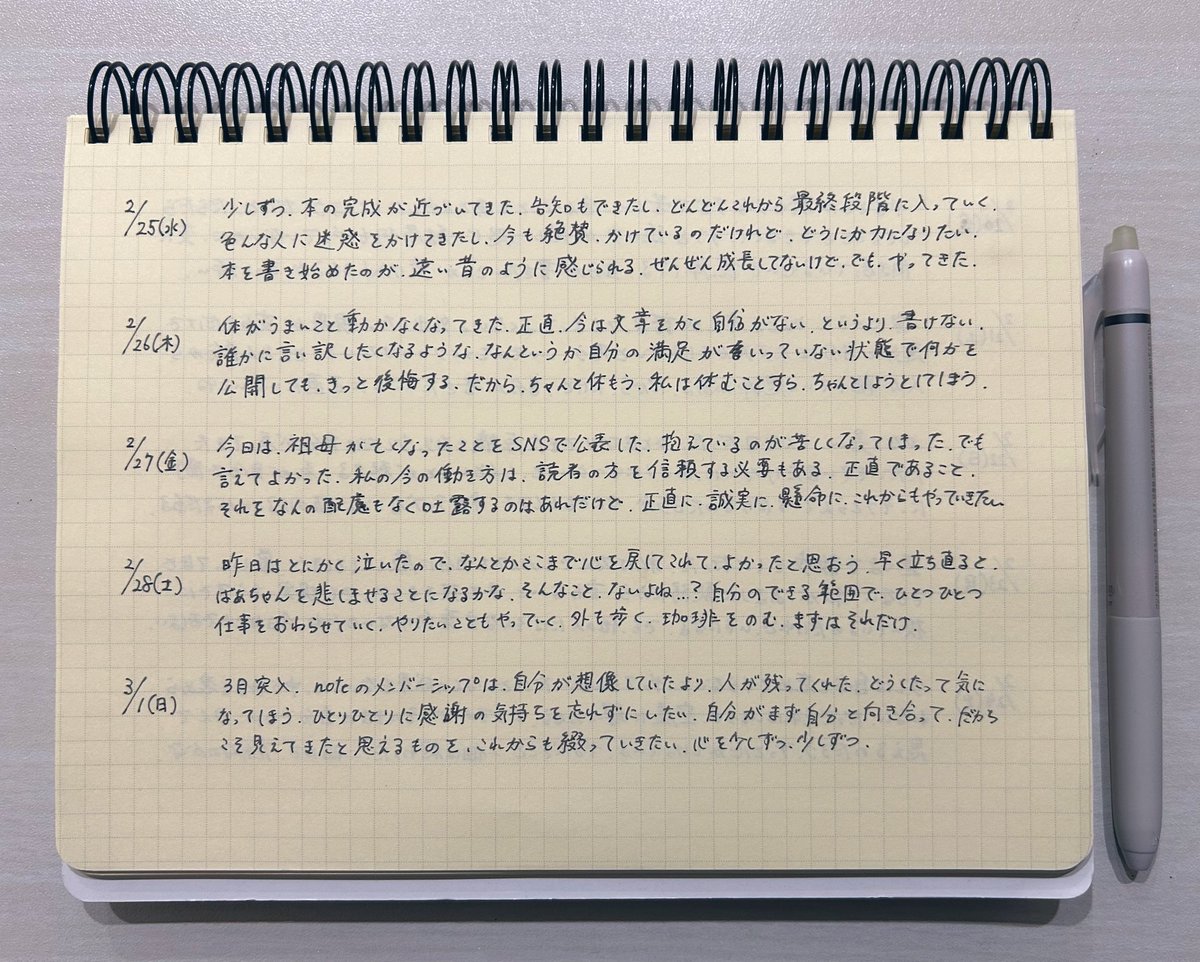 2/25(水) 少しずつ、本の完成が近づいてきた。告知もできたし、どんどんこれから最終段階に入っていく。
色んな人に迷惑をかけてきたし、今も絶賛、かけているのだけれど、どうにか力になりたい。
本を書き始めたのが、遠い昔のように感じられる。ぜんぜん成長してないけど、でも、やってきた。
2/26(木) 体がうまいこと動かなくなってきた。正直、今は文章をかく自信がない、というより、書けない。
誰かに言い訳したくなるような、なんというか自分の満足がいっていない状態で何かを
公開しても、きっと後悔する。だから、ちゃんと休もう。私は休むことすら、ちゃんとしようとしてしまう。
2/27(金) 今日は、祖母が亡くなったことをSNSで公表した。抱えているのが苦しくなってしまった。でも
言えてよかった。私の今の働き方は、読者の方を信頼する必要もある。正直であること。
それをなんの配慮もなく吐露するのはあれだけど、正直に、誠実に、懸命に、これからもやっていきたい。
2/28(土) 昨日はとにかく泣いたので、なんとかここまで心を戻してこれて、よかったと思おう。早く立ち直ると、
ばあちゃんを悲しませることになるかな。そんなこと、ないよね…?自分のできる範囲で、ひとつひとつ
仕事をおわらせていく。やりたいこともやっていく。外も歩く。珈琲をのむ。まずはそれだけ。
3/1(日) 3月突入。noteのメンバーシップは、自分が想像していたより、人が残ってくれた。どうしたって気に
なってしまう。ひとりひとりに感謝の気持ちを忘れずにいたい。自分がまず自分と向き合って、だから
こそ見えてきたと思えるものを、これからも綴っていきたい。心を少しずつ、少しずつ。